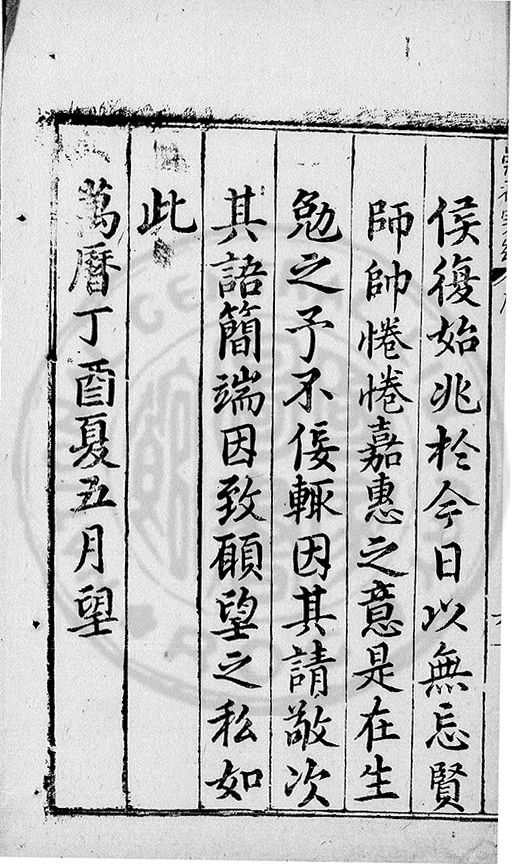 侯復始兆於今日以無忘賢
師帥惓惓嘉惠之意是在生
勉之予不佞輒因其請敬次
其語簡端因致願望之私如
此
萬曆丁酉夏五月望